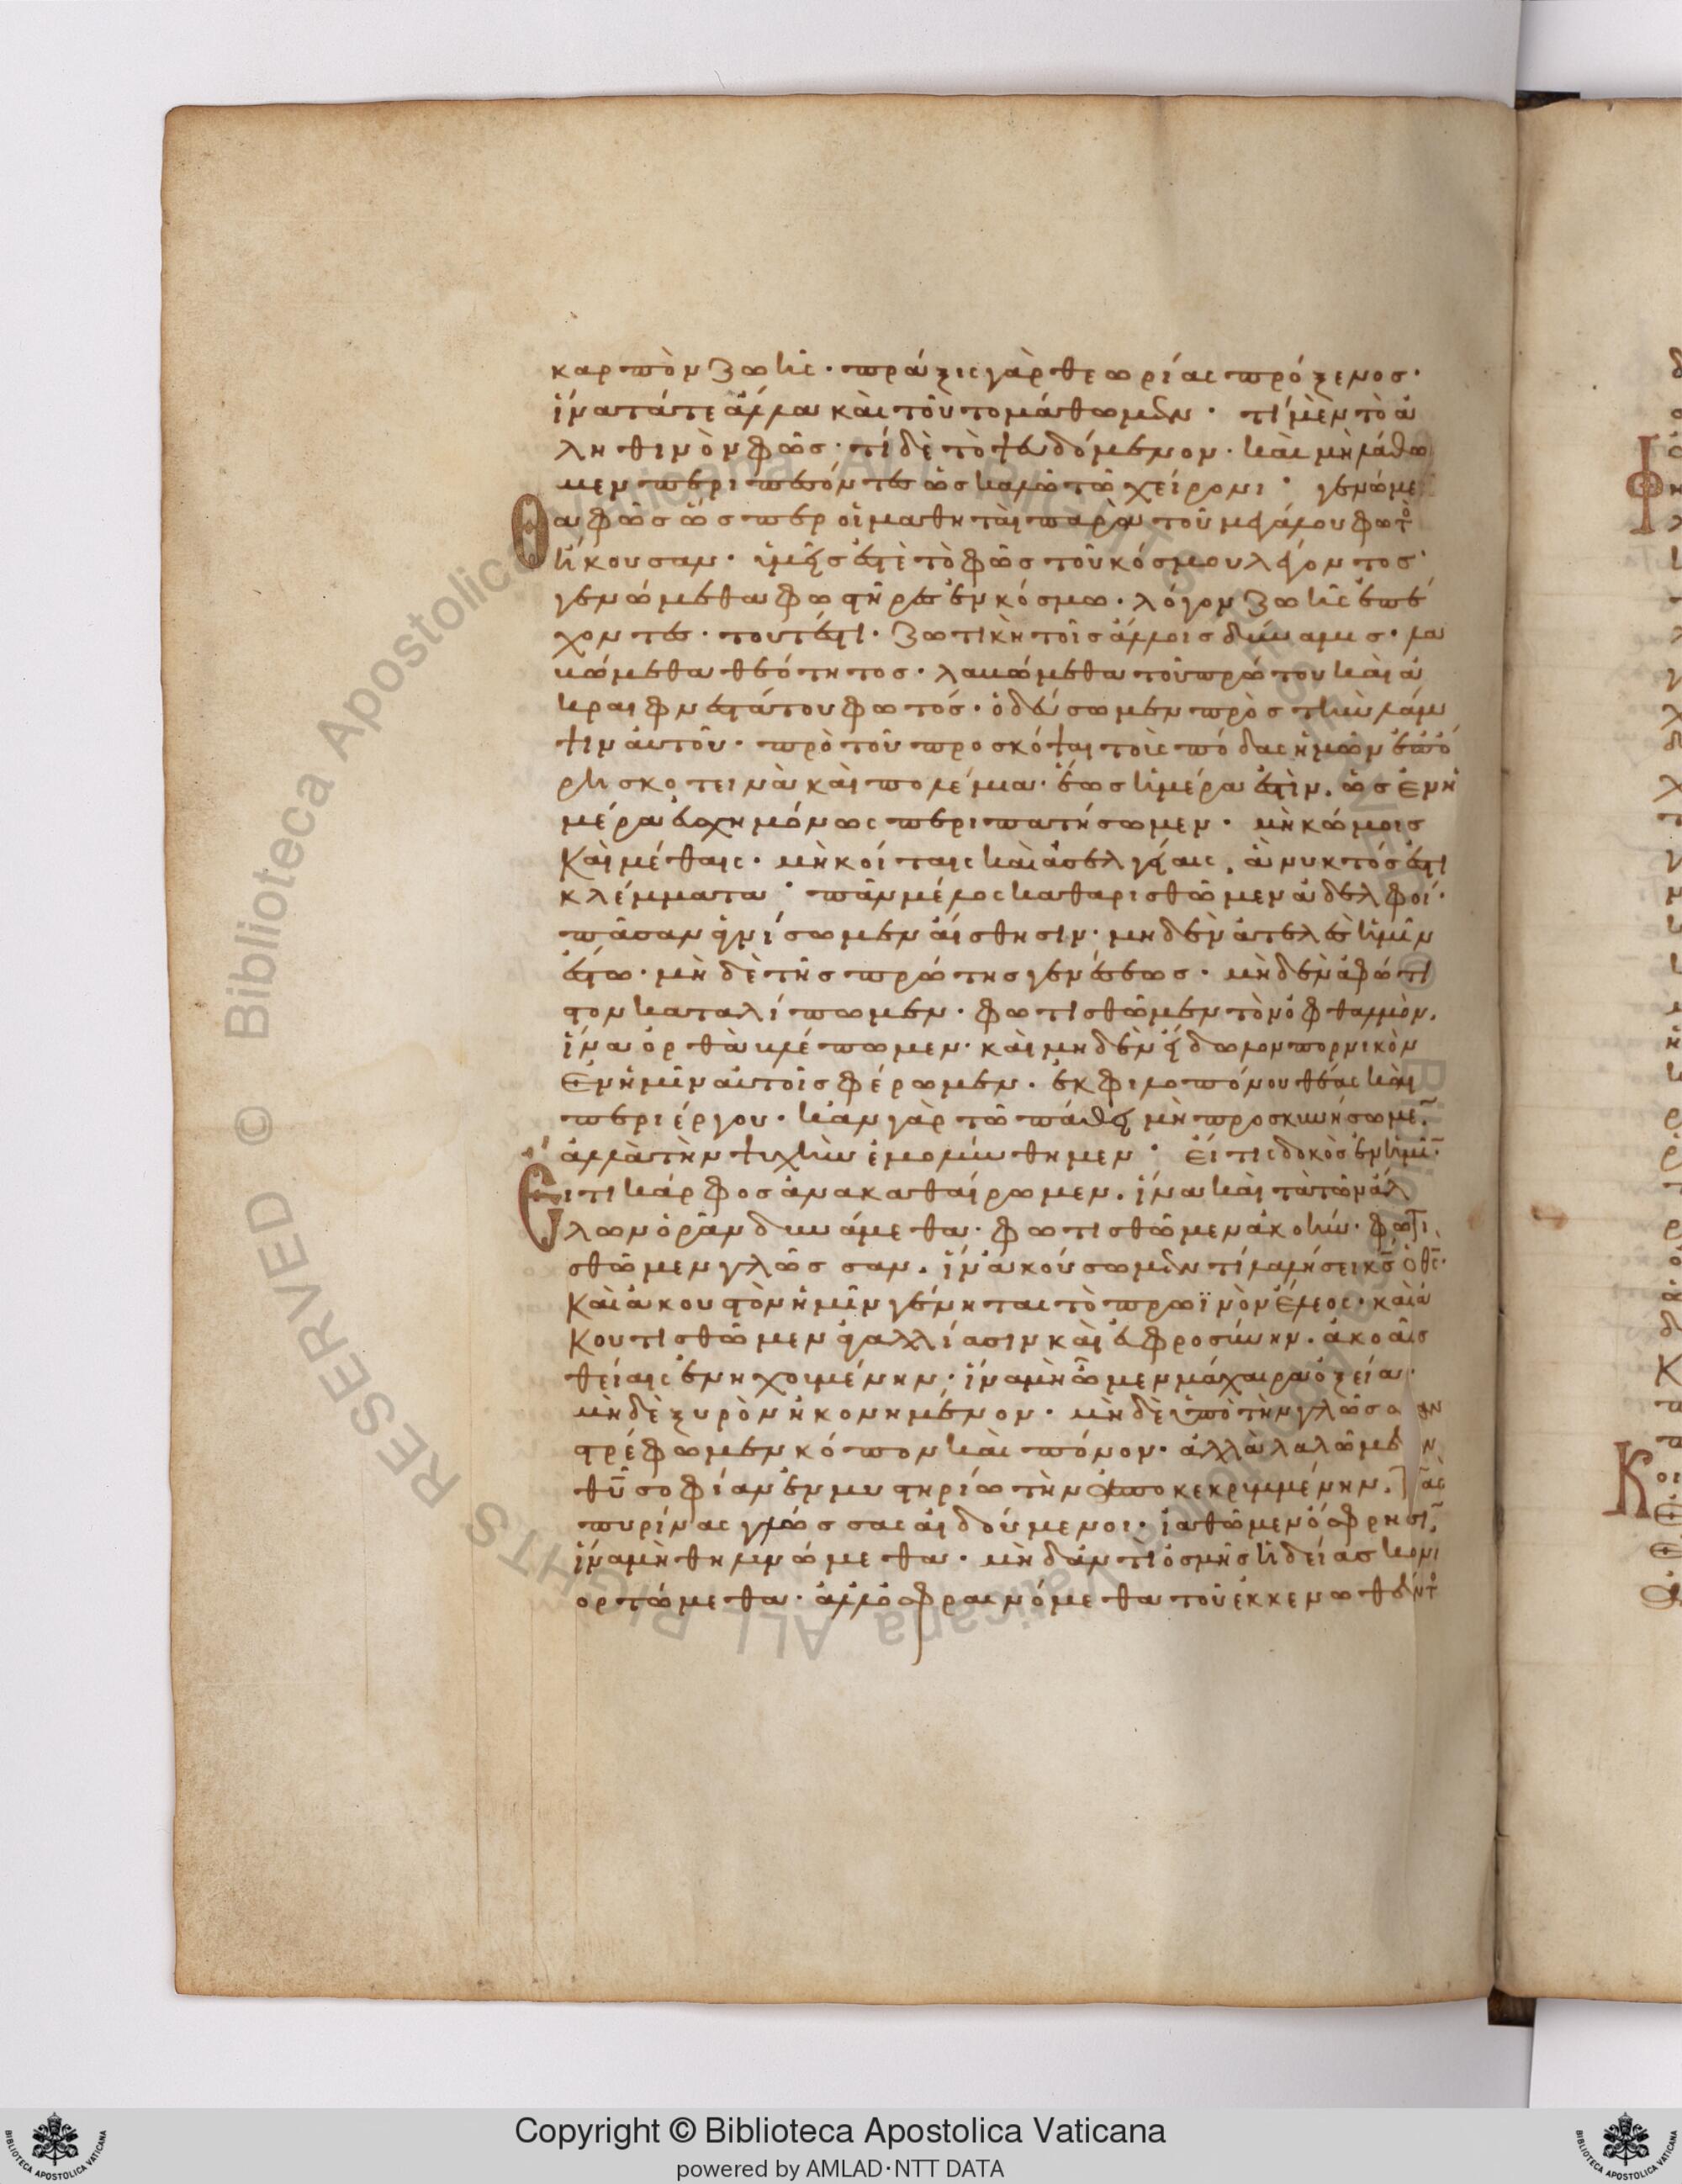 καρπὸν ζωῆς· πράξις γὰρ θεωρίας πρόξενος·
ἵνα τά τε ἄλλα καὶ τοῦτο μάθωμεν· τί μὲν τὸ ἀ
ληθινὸν φῶς· τί δὲ τὸ ψευδόμενον· καὶ μὴ λάθω
μεν περιπεσόντες ὡς καλῶ τῶ χείρονι· γενώμε
θα φῶς ὥσπερ οἱ μαθηταὶ παρὰ τοῦ μεγάλου φωτὸ
ἤκουσαν· ὑμεῖς ἐστὲ τὸ φῶς τοῦ κόσμου λέγοντος·
γενώμεθα φωστῆρες ἐν κόσμω· λόγον ζωῆς ἐπέ
χοντες· τουτέστι· ζωτικὴ τοῖς ἄλλοις δύναμις· λα
βώμεθα θεότητος· λαβώμεθα τοῦ πρώτου καὶ ἀ
κραιφνεστάτου φωτός· ὁδεύσωμεν πρὸς τὴν λάμ
ψιν αὐτοῦ· πρὸ τοῦ προσκόψαι τοὺς πόδας ἡμῶν ἐπ' ὄ
ρη σκοτεινὰ καὶ πολέμια· ἕως ἡμέρα ἐστὶν. ὡς ἐν ἡ
μέρα εὐσχημόνως περιπατήσωμεν· μὴ κώμοις
καὶ μέθαις· μὴ κοίταις καὶ ἀσελγείαις, ἃ νυκτός ἐστι
κλέμματα· πᾶν μέλος καθαρισθῶμεν ἀδελφοί·
πᾶσαν ἁγνίσωμεν αἴσθησιν· μηδὲν ἀτελὲς ἡμῖν
ἔστω· μὴ δὲ τῆς πρώτης γενέσεως· μὴδὲν ἀφώτι
στον καταλίπωμεν· φωτισθῶμεν τὸν ὀφθαλμὸν.
ἵνα ὀρθὰ βλέπωμεν· καὶ μηδὲν εἴδωλον πορνικὸν
ἐν ἡμῖν αὐτοῖς φέρωμεν· ἐκ φιλοπόνου θέας καὶ
περιέργου· κἂν γὰρ τῶ πάθει μὴ προσκυνήσωμε̅
ἀλλὰ τὴν ψυχὴν ἐμολύνθημεν· εἴ τις δοκὸς ἐν ἡμῖ̅·
εἴ τι κάρφος ἀνακαθαίρωμεν. ἵνα καὶ τὰ τῶν ἄλ
λων ὁρᾶν δυνάμεθα· φωτισθῶμεν ἀκοὴν· φωτι
σθῶμεν γλῶσσαν. ἵν' ἀκούσωμεν τί λαλήσει κς̅ ὁ θς̅·
καὶ ἀκουστὸν ἡμῖν γένηται τὸ πρωϊνὸν ἔλεος· καὶ ἀ
κουτισθῶμεν ἀγαλλίασιν καὶ εὐφροσύνην. ἀκοαῖς
θείαις ἐνηχουμένην· ἵνα μὴ ὦμεν μάχαιρα ὀξεία·
μὴ δὲ ξυρὸν ἠκονημένον· μὴ δὲ ὑπὸ τὴν γλῶσσαν
στρέφωμεν κόπον καὶ πόνον· ἀλλὰ λαλῶμεν
θυ̅ σοφίαν ἐν μυστηρίω τὴν ἀποκεκριμμένην. τὰς
πυρίνας γλώσσας αἰδούμενοι· ἰαθῶμεν ὄσφρησι̅,
ἵνα μὴ θηλυνώμεθα· μὴ δ' ἀντὶ ὀσμῆς ἡδείας κονι
ορτώμεθα· ἀλλ' ὀσφραινόμεθα τοῦ ἐκκενωθέντο